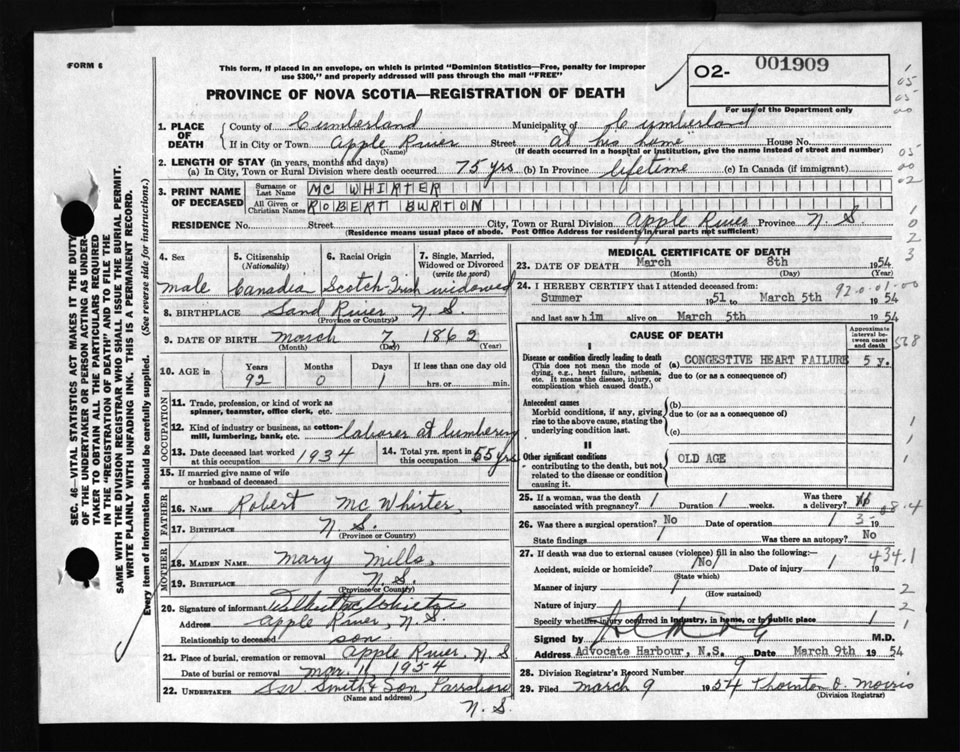 FORM 6
This form, if placed in an envelope, on which is printed "Dominion Statistics—Free, penalty for improper
use $300," and properly addressed will pass through the mail "FREE"
O2- 001909
PROVINCE OF NOVA SCOTIA—REGISTRATION OF DEATH
For use of the Department only
1. PLACE OF DEATH { County of Cumberland Municipality of Cumberland
If in City or Town Apple River Street "at his home" House No.
(Name) (If death occurred in a hospital or institution, give the name instead of street and number)
2. LENGTH OF STAY (in years, months and days)
(a) In City, Town or Rural Division where death occurred 75 yrs (b) In Province lifetime (c) In Canada (if immigrant)
3. PRINT NAME OF DECEASED { Surname or Last Name MC WHIRTER
All Given or Christian Names ROBERT BURTON
RESIDENCE No. Street City, Town or Rural Division Apple River Province N. S
(Residence means usual place of abode. Post Office Address for residents in rural parts not sufficient)
4. Sex 5. Citizenship (Nationality) 6. Racial Origin 7. Single, Married, Widowed or Divorced (write the word)
male Canadia Scotch-Irish widowed
8. BIRTHPLACE Sand River N. S.
(Province or Country)
9. DATE OF BIRTH March 7 1862
(Month) (Day) (Year)
10. AGE IN { Years Months Days If less than one day old
92 0 1 hrs. or min.
OCCUPATION
11. Trade, profession, or kind of work as
spinner, teamster, office clerk, etc.
12. Kind of industry or business, as cotton-
mill, lumbering, bank, etc. laborer at lumbering
13. Date deceased last worked at this occupation 1934 14. Total yrs. spent in this occupation 55 yrs
15. If married give name of wife
or husband of deceased
FATHER
16. NAME Robert McWhirter
17. BIRTHPLACE N. S.
(Province or Country)
MOTHER
18. MAIDEN NAME Mary Mills
19. BIRTHPLACE N. S.
(Province or Country)
20. Signature of informant
Address Apple River, N. S.
Relationship to deceased son
21. Place of burial, cremation or removal Apple River, N. S
Date of burial or removal Mar. 11 1954
22. UNDERTAKER Smith & Son, Parrsboro
(Name and address)
N. S.
MEDICAL CERTIFICATE OF DEATH
23. DATE OF DEATH March 8th 1954
(Month) (Day) (Year)
24. I HEREBY CERTIFY that I attended deceased from: 920-01-00
Summer 1951 to March 5th 1954
and last saw him alive on March 5th 1954
CAUSE OF DEATH
Approximate interval between onset and death
I
Disease or condition directly leading to death
(This does not mean the mode of
dying, e.g., heart failure, asthenia,
etc. It means the disease, injury, or
complication which caused death.)
(a) CONGESTIVE HEART FAILURE 5 y.
due to (or as a consequence of)
Antecedent causes
Morbid conditions, if any, giving
rise to the above cause, stating the
underlying condition last.
(b)
due to (or as a consequence of)
(c)
II
Other significant conditions
contributing to the death, but not
related to the disease or condition
causing it.
OLD AGE
25. If a woman, was the death associated with pregnancy? / Duration / weeks. Was there a delivery?
26. Was there a surgical operation? No Date of operation / 19
State findings / Was there an autopsy? No
27. If death was due to external causes (violence) fill in also the following:—
Accident, suicide or homicide? /No/ Date of injury / 19
(State which)
434.1
Manner of injury /
(How sustained)
Nature of injury /
Specify whether injury occurred in industry, in home, or in public place /
Signed by M.D.
Address Advocate Harbour, N.S. Date March 9th 1954
28. Division Registrar's Record Number 9
29. Filed March 9 1954 Thornton O. Morris
(Division Registrar)
SEC. 46—VITAL STATISTICS ACT MAKES IT THE DUTY
OF THE UNDERTAKER OR PERSON ACTING AS UNDER-
TAKER TO OBTAIN ALL THE PARTICULARS REQUIRED
IN THE "REGISTRATION OF DEATH" AND TO FILE THE
SAME WITH THE DIVISION REGISTRAR WHO SHALL ISSUE THE BURIAL PERMIT.
WRITE PLAINLY WITH UNFADING INK. THIS IS A PERMANENT RECORD.
Every item of information should be carefully supplied. (See reverse side for instructions.)